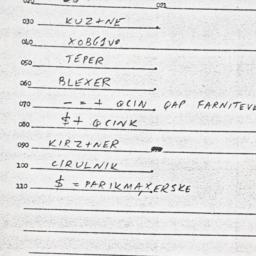 030 KUZ+NE
040 XOBGIVO
050 TEPER
060 BLEXER
070 - = + GCIN GAP FARNITEVE
080 $+ GCINK
090 KIRZ+NER
100 CIRULNIK
110 $ = PARIKMAXERSKE